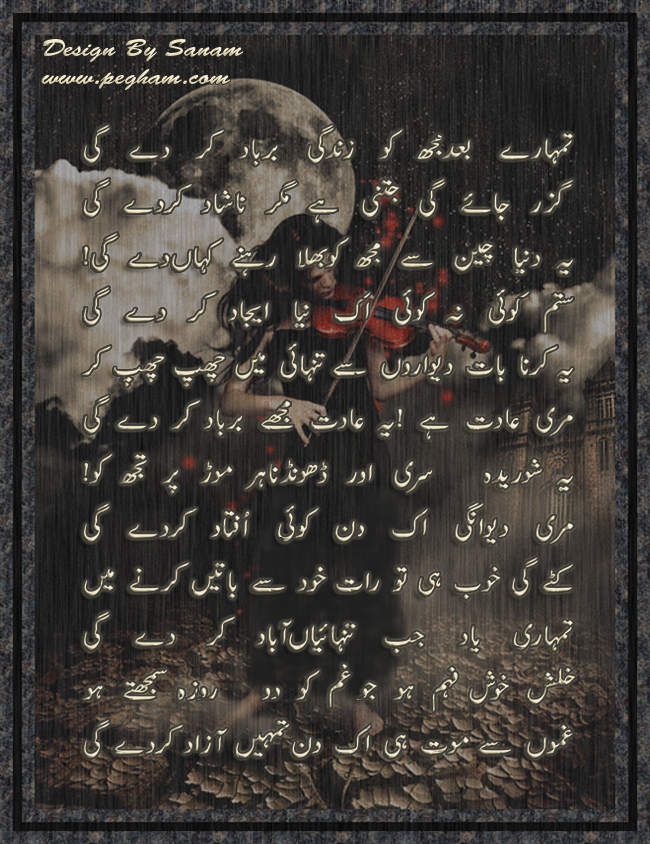 Design By Sanam
www.pegham.com
تمہارے بعد مجھ کو زندگی برباد کر دے گی
گزر جائے گی جتنی ہے مگر ناشاد کردے گی
یہ دنیا چین سے مجھ کو بھلا رہنے کہاں دے گی!
ستم کوئی نہ کوئی اَک نیا ایجاد کر دے گی
یہ کرنا بات دیواروں سے تنہائی میں چھپ چھپ کر
مری عادت ہے !یہ عادت مجھے برباد کر دے گی
یہ شوریدہ سری اور ڈھونڈنا ہر موڑ پر تجھ کو!
مری دیوانگی اک دن کوئی اُفتاد کردے گی
کٹے گی خوب ہی تو رات خود سے باتیں کرنے میں
تمہاری یاد جب تنہائیاں آباد کر دے گی
خلش خوش فہم ہو جو غم کو دو روزہ سمجھتے ہو
غموں سے موت ہی اک دن تمہیں آزاد کردے گی